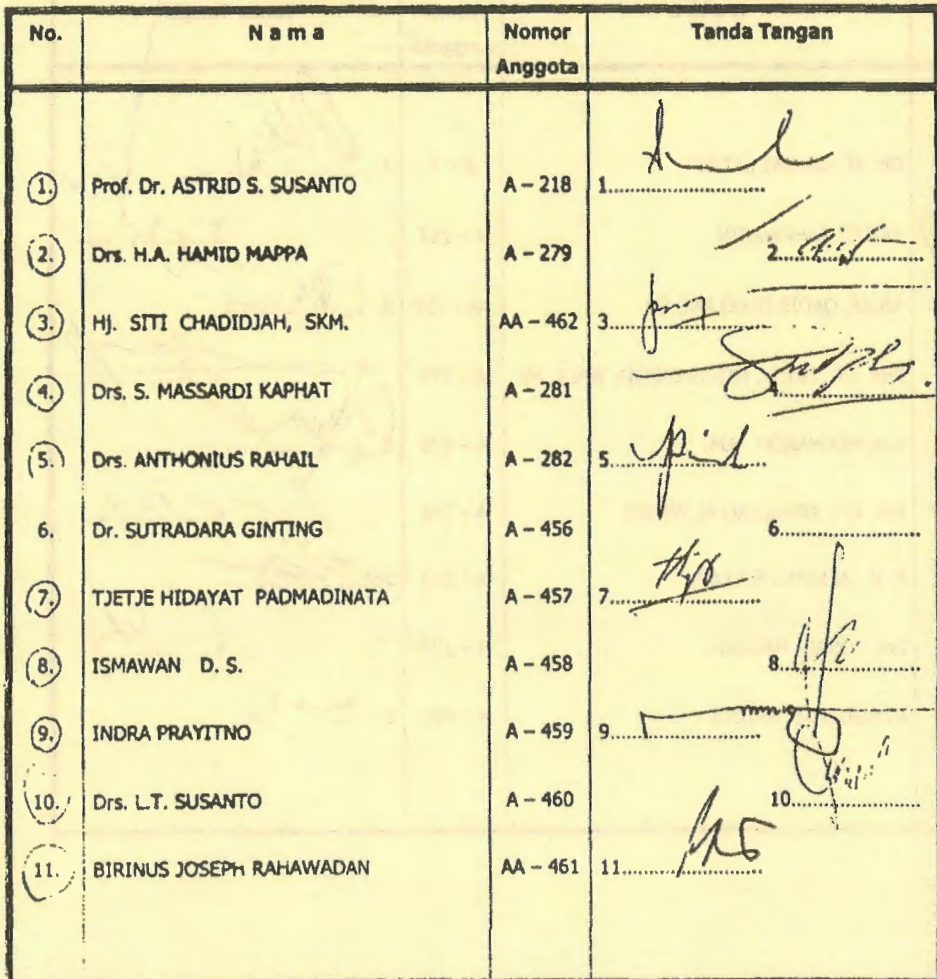 No. N a m a Nomor Anggota Tanda Tangan
1. Prof. Dr. ASTRID S. SUSANTO A – 218 1.....................
2. Drs. H.A. HAMID MAPPA A – 279 2.....................
3. Hj. SITI CHADIDJAH, SKM. AA – 462 3.....................
4. Drs. S. MASSARDI KAPHAT A – 281 4.....................
5. Drs. ANTHONIUS RAHAIL A – 282 5.....................
6. Dr. SUTRADARA GINTING A – 456 6.....................
7. TJETJE HIDAYAT PADMADINATA A – 457 7.....................
8. ISMAWAN D. S. A – 458 8.....................
9. INDRA PRAYITNO A – 459 9.....................
10. Drs. L.T. SUSANTO A – 460 10.....................
11. BIRINUS JOSEPH RAHAWADAN AA – 461 11.....................